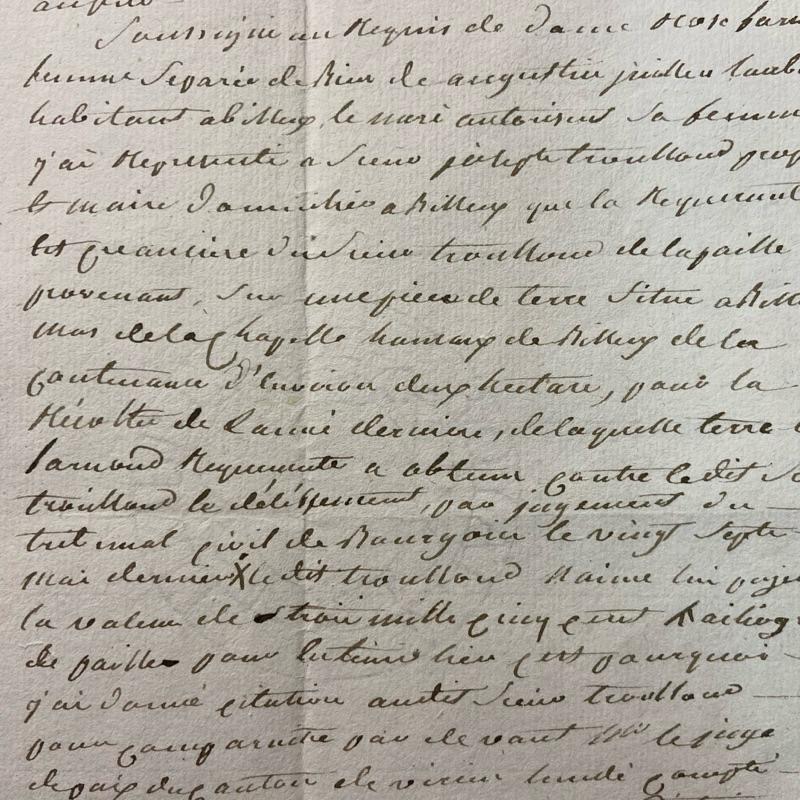 Soussigné au Requis de dame Rose
femme Separée de Bien de augustin
habitant a Bilieu, le mari autorisant Sa femme
j'ai Representé a Sieur joseph trouilloud
et maire domicilié a Bilieu que la Requerant
est creancière dudit Sieur trouilloud de la paille
provenant, Sur une pièce de terre Situé a
mas de la Chapelle hameau de Bilieu de la
contenance d'Environ deux hectare, pour la
Récolte de Lanné dernière, de laquelle terre
Requerante a obtenu contre ledit
trouilloud le délessement, par jugement du
tribunal civil de Bourgoin le vingt Sept
mai dernier X ledit trouilloud Naime lui
la valeur de trois mille cinq cent
de paille pour lui tenir lieu c'est pourquoi
j'ai donné citation audit Sieur trouilloud
pour comparaitre par de vant Mr le juge
de paix du canton de virieu lundi